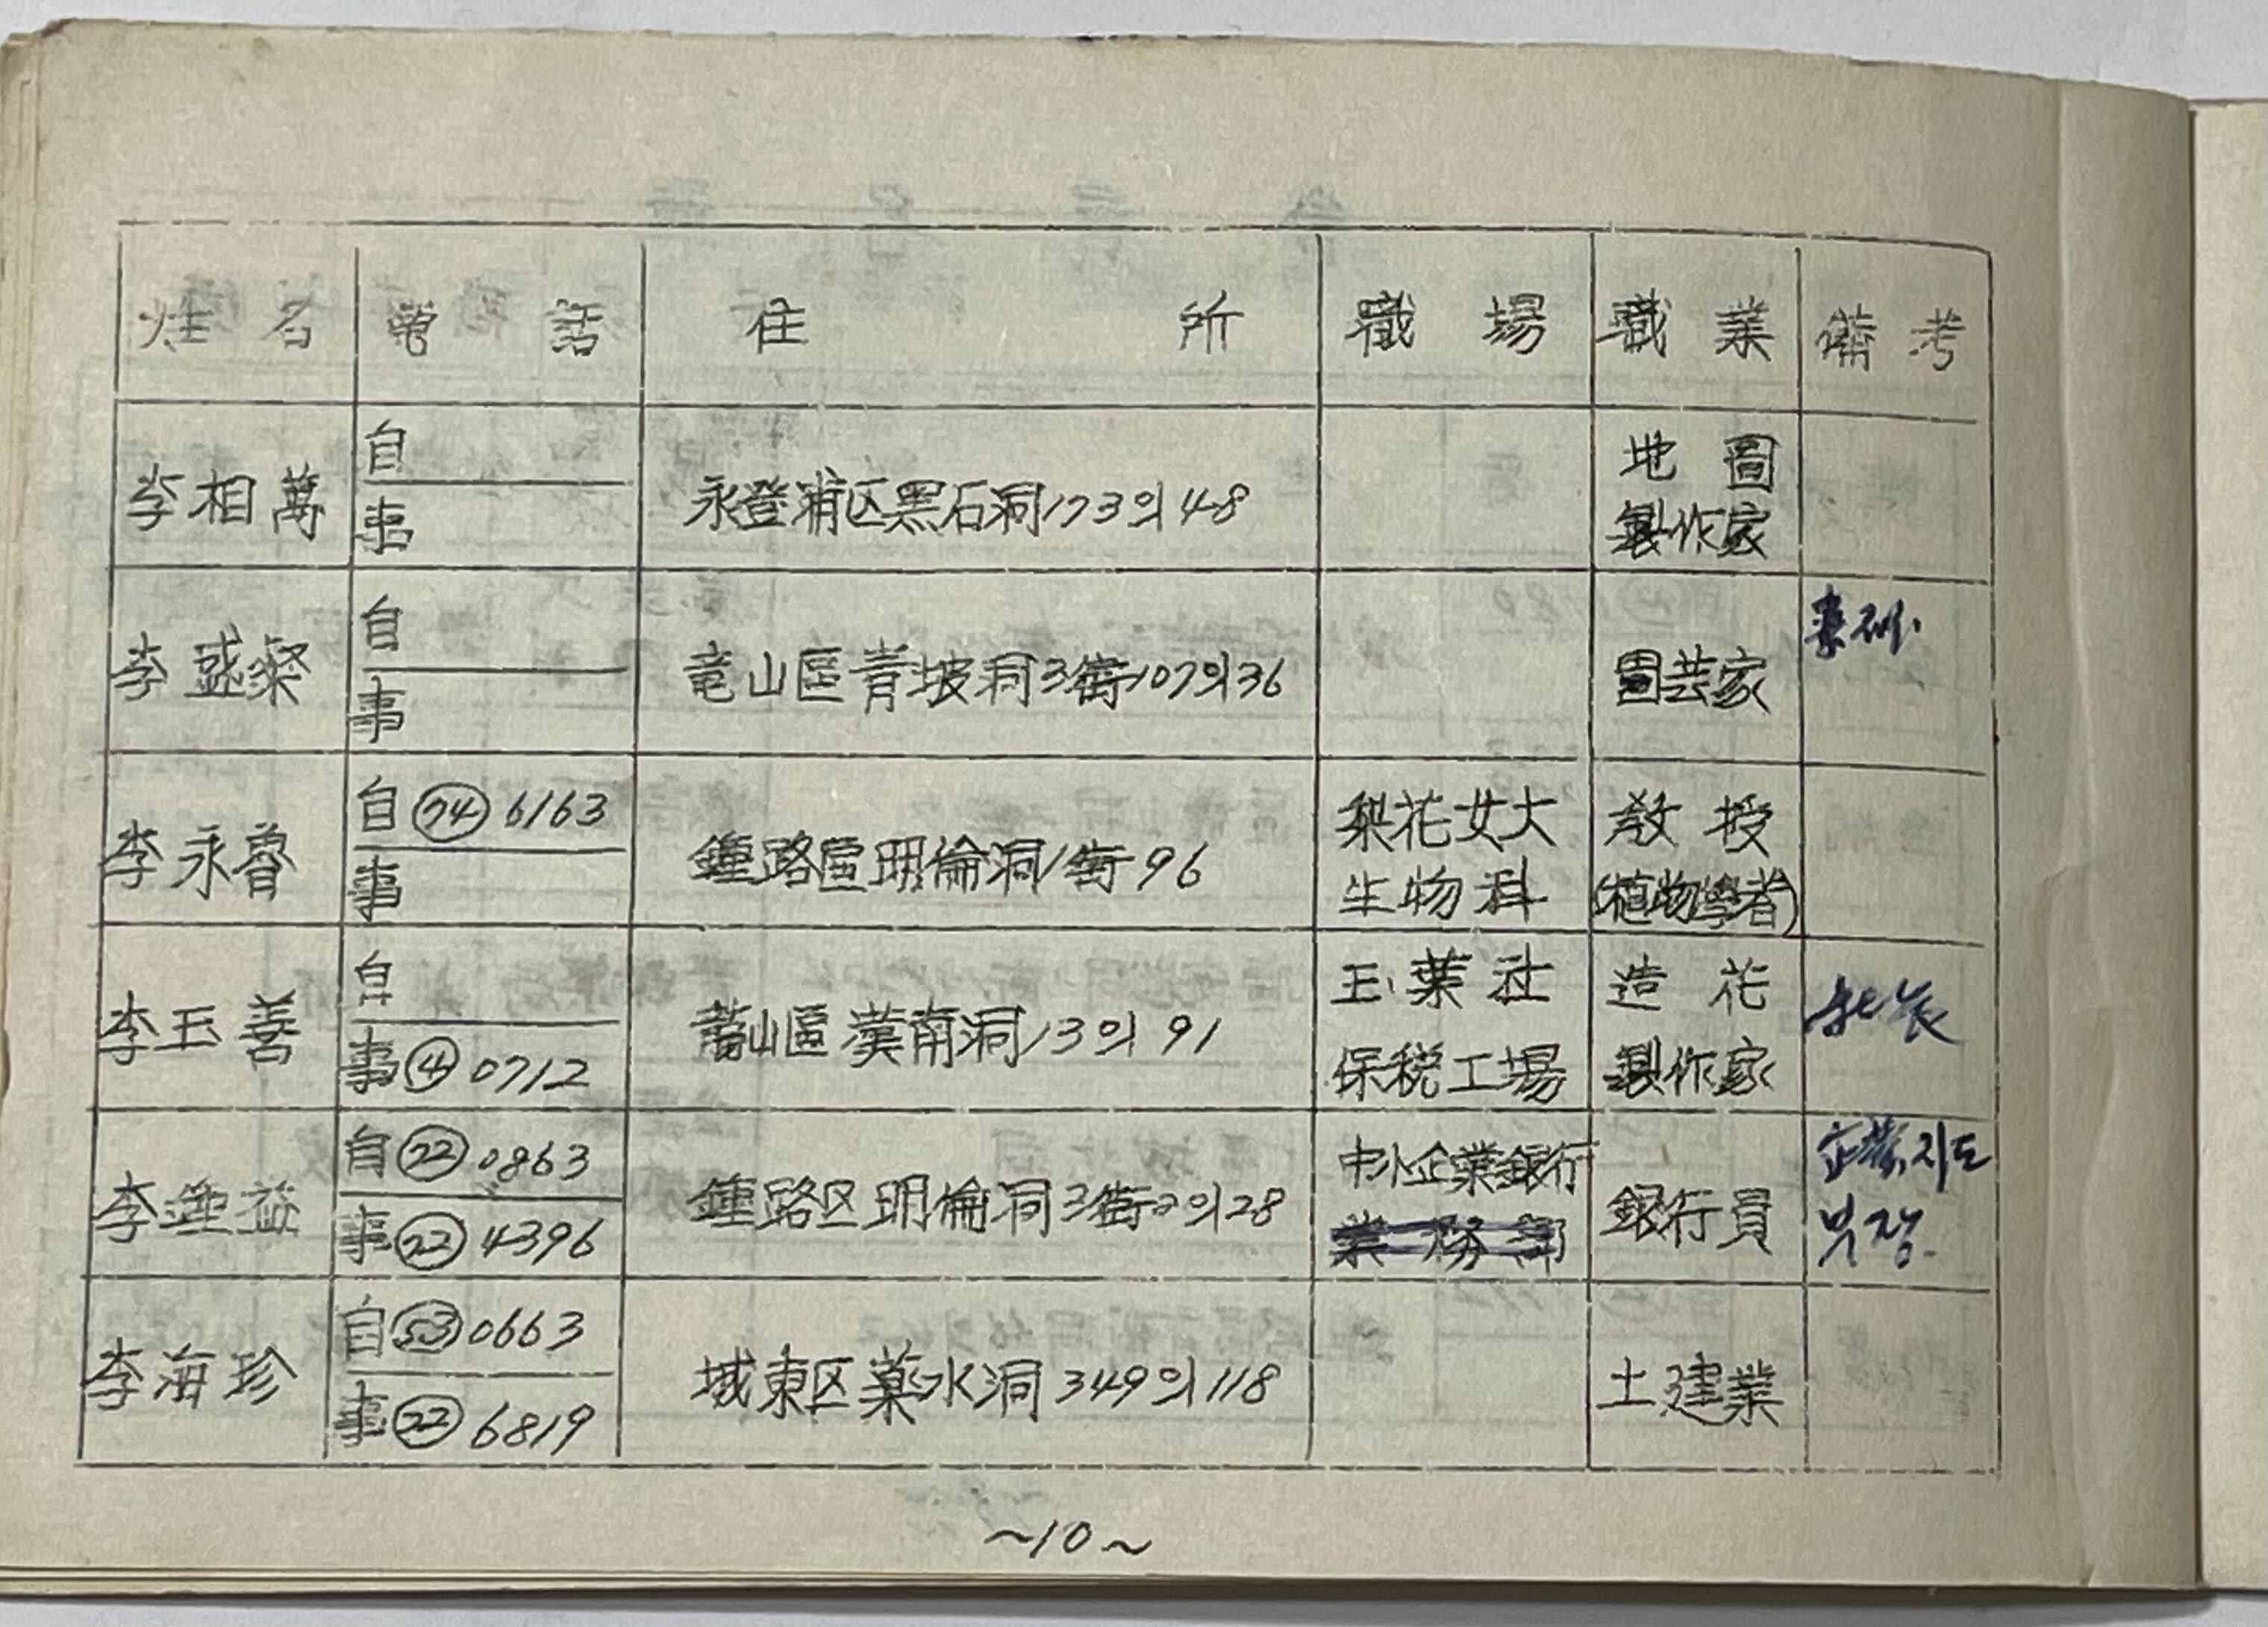 姓名 電話 住所 職場 職業 備考
李相萬 自 事 永登浦区黑石洞173의48 地圖
製作家
李盛粲 自 事 竜山區青坡洞3街107의36 園芸家
李永魯 自 (74) 6163 鍾路區明倫洞1街96 梨花女大 敎授
事 生物科 (植物學者)
李玉善 自 龍山區漢南洞13의91 玉葉社 造花
事 (4) 0712 保税工場 製作家
李鍾益 自 (22) 0863 鍾路区明倫洞3街2의28 中小企業銀行 銀行員 企業지도
事 (22) 4396 業務部 부장.
李海珍 自 (53) 0663 城東区薬水洞349의118 土建業
事 (22) 6819
~10~